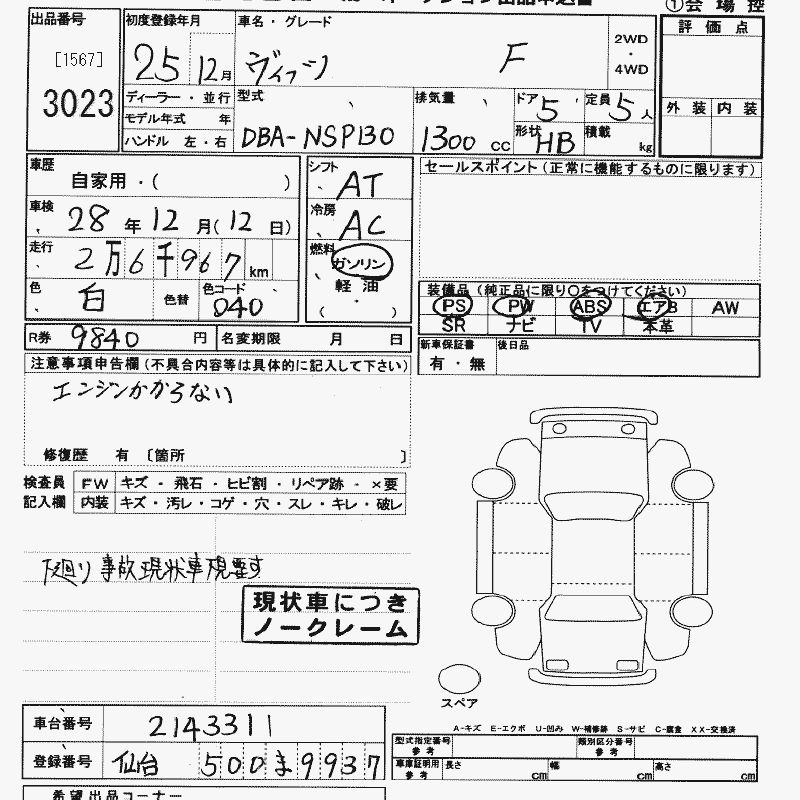 ①会 場 控
出品番号
[1567]
3023
初度登録年月
25 12月
車名・グレード
ヴィッツ F
2WD
・
4WD
評 価 点
外 装 内 装
ディーラー・並行
モデル年式 年
ハンドル 左・右
型式
DBA-NSP130
排気量
1300 CC
ドア 5
定員 5 人
形状 HB
積載 kg
車歴
自家用・( )
車検
28 年 12 月(12 日)
走行
2万6千967 km
色
白
色替
色コード
040
シフト
AT
冷房
AC
燃料
ガソリン
軽 油
( )
セールスポイント(正常に機能するものに限ります)
装備品(純正品に限り○をつけてください)
PS PW ABS エアB AW
SR ナビ TV 本革
R券 9840 円 名変期限 月 日
新車保証書
有・無
後日品
注意事項申告欄(不具合内容等は具体的に記入して下さい)
エンジンかからない
修復歴 有 〔箇所 〕
検査員
記入欄
FW キズ・飛石・ヒビ割・リペア跡・×要
内装 キズ・汚レ・コゲ・穴・スレ・キレ・破レ
下廻り 事故現状車現要す
現状車につき
ノークレーム
スペア
車台番号 2143311
登録番号 仙台 500 ま 9937
A-キズ E-エクボ U-凹み W-補修跡 S-サビ C-腐食 XX-交換済
型式指定番号
参考
類別区分番号
参考
車庫証明用
参考
長さ cm 幅 cm 高さ cm
希望出品コーナー